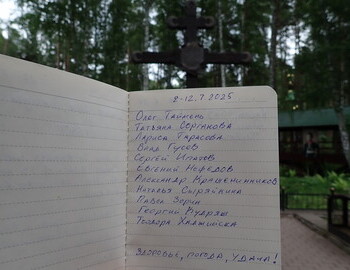 8-12.7.2025
Олег Таймень
Татьяна Сергакова
Лариса Тарасова
Влад Гусев
Сергей Ипатов
Евгений Нефедов
Александр Крашенинников
Наталья Сыряйкина
Павло Зорин
Георгий Кудряш
Теодора
Здоровье, погода, удачи!